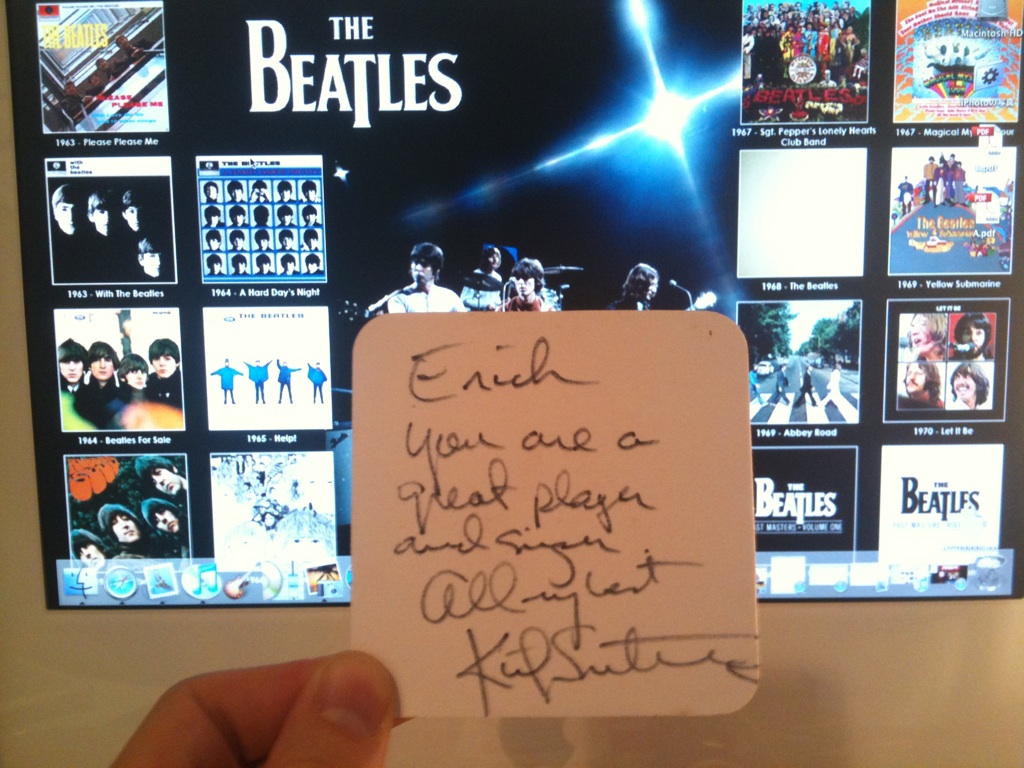 THE
BEATLES
THE BEATLES
PLEASE
PLEASE ME
1963 - Please Please Me
with
the
beatles
1963 - With The Beatles
THE BEATLES
1964 - A Hard Day's Night
1964 - Beatles For Sale
THE BEATLES
1965 - Help!
BEATLES
1967 - Sgt. Pepper's Lonely Hearts
Club Band
Macintosh HD
MAGICAL MYSTERY TOUR
iPhotoの写真
1967 - Magical My our
PDF
PDF
The Beatles
Yellow Submarine
A.pdf
1968 - The Beatles
1969 - Yellow Submarine
1969 - Abbey Road
LET IT BE
1970 - Let It Be
THE
BEATLES
AST MASTERS • VOLUME ONE
THE
BEATLES
PAST MASTERS
Erich
you are a
great player
and singer.
All my best